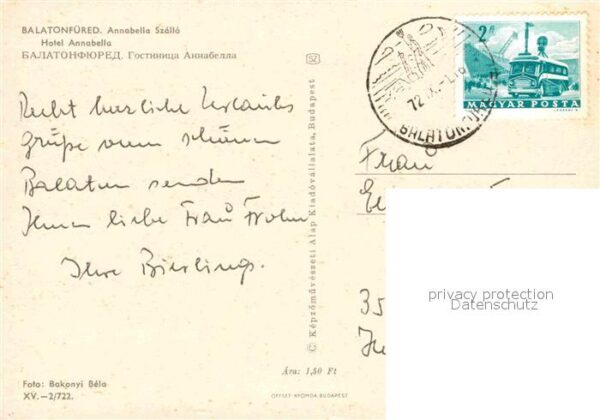 BALATONFÜRED. Annabella Szálló
Hotel Annabella
БАЛАТОНФЮРЕД. Гостиница Аннабелла
Recht herzliche Urlaubs
grüße vom schönen
Balaton senden
Ihnen liebe Frau Frohn
Ihre Bierlings.
Foto: Bakonyi Béla
XV.—2/722.
© Képzőművészeti Alap Kiadóvállalata, Budapest
Ára: 1,50 Ft
OFFSET-NYOMDA BUDAPEST
2 Ft
MAGYAR POSTA
72
BALATON
Frau
35
privacy protection
Datenschutz